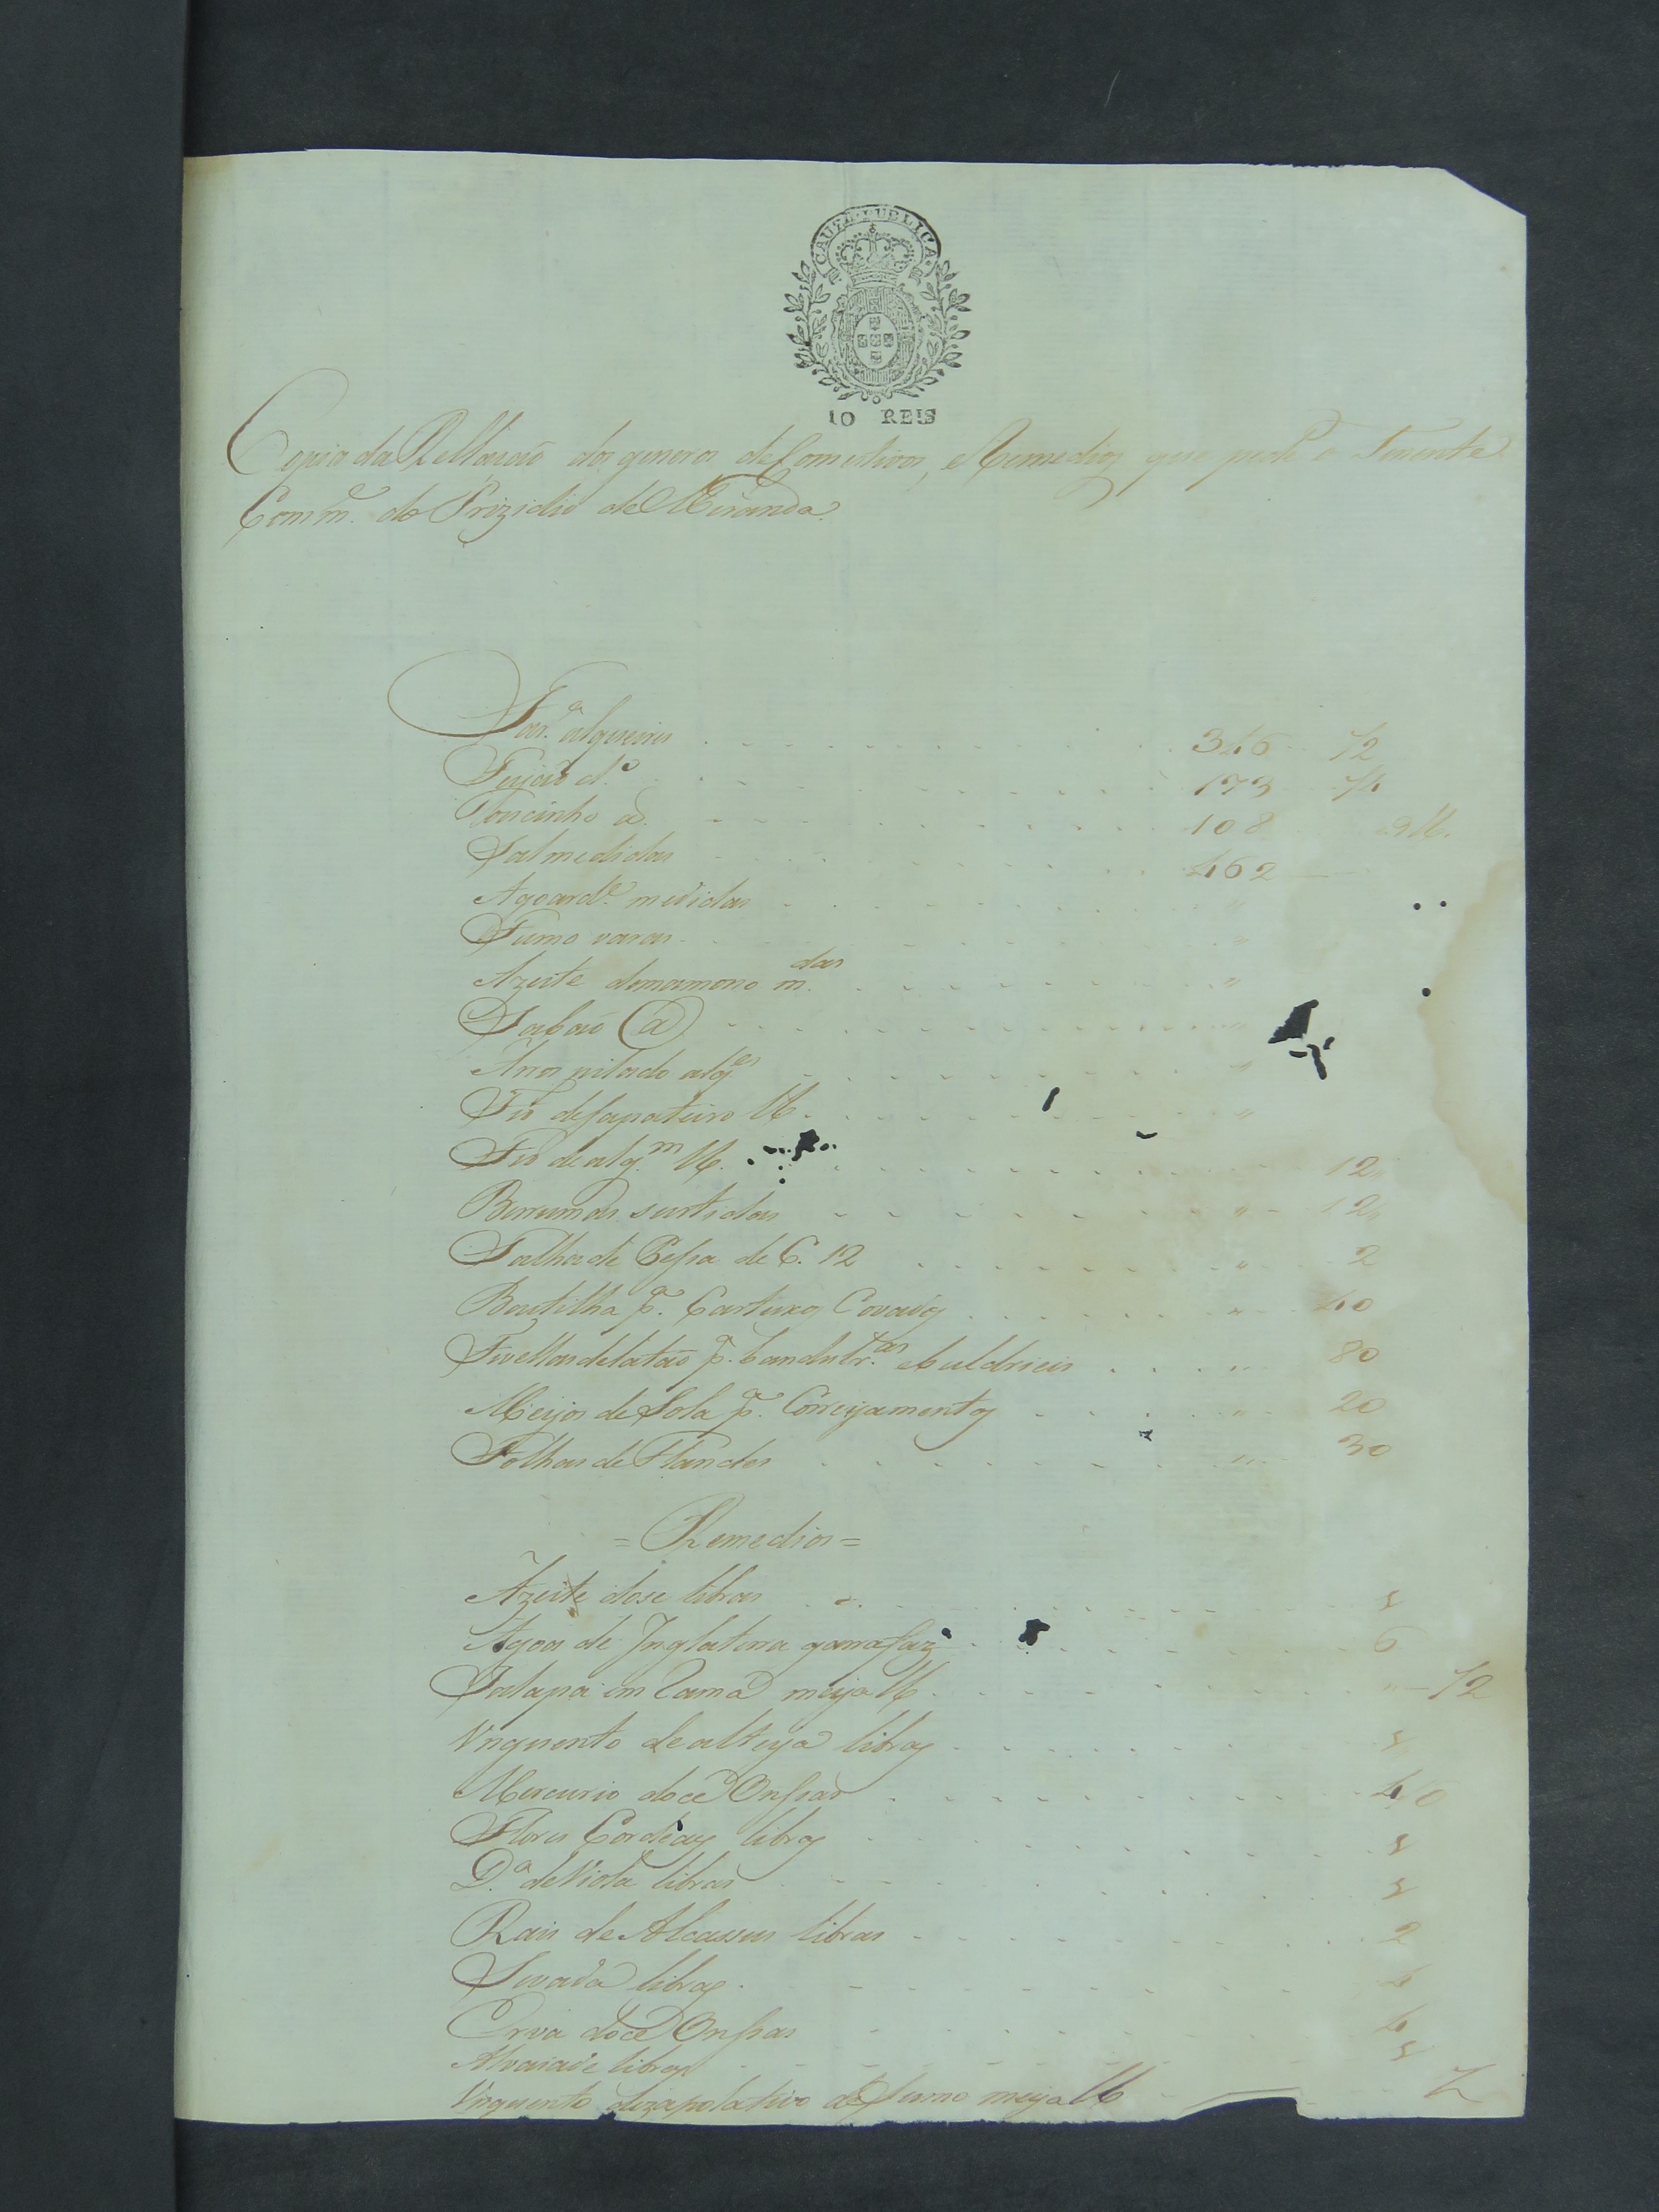 CAUZA PUBLICA
10 REIS
Copia da Rellaçaõ dos generos de Comestivos, e Remedios que pede o Tenente
Comm.e do Prizidio de Miranda.
Far.a alqueires 346 1/2
Feijaõ d.o 173 1/4
Toucinho @ 108 9 lb.
Sal medidas 462
Agoard.e medidas "
Fumo varas "
Azeite de mamono m.das "
Sabaõ @ "
Arros pilado alq.es "
Fio de sapateiro lb. "
Fio de alg.m lb. 12"
Berrumas surtidas " 12"
Palha de Pessa de C. 12 " 2
Baetilha p.a Cartuxos Covados " 40
Fivellas de lataõ p.a bandulr.as e buldrieis " 80
Meijos de Sola p.a Correyamentos " 20
Folhas de Flandes " 30
= Remedios =
Azeite dose libras
Agoa de Inglaterra garrafaz 6
Jalapa em Rama meija lb. " 1/2
Vnguento de alteya libras
Mercurio doce Onssas 40
Flores Cordeais libras
D.a de Viola libras
Rais de Alcassus libras 2
Sevada libras 4
Erva doce Onssas 4
Alvaiade libras
Vnguento dezapolativo de sumo meija lb